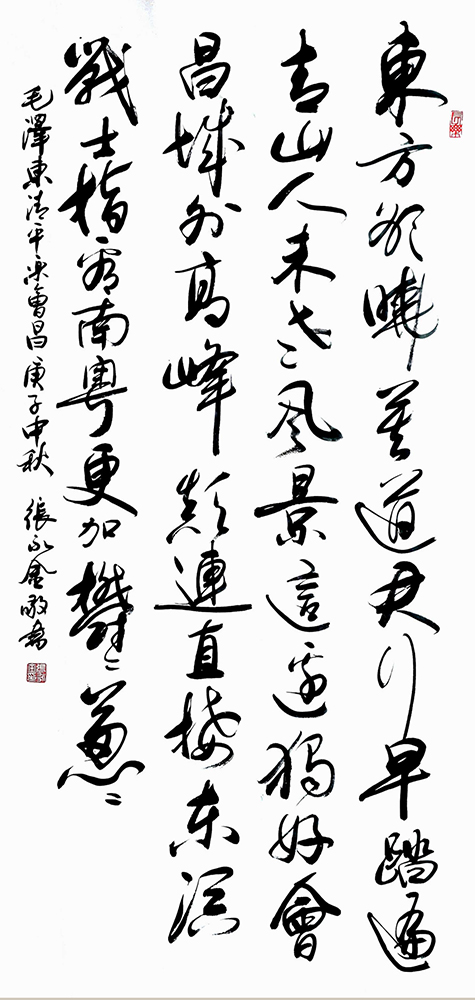 東方欲曉莫道君行早踏遍
青山人未老风景這邊獨好會
昌城外高峰顛連直接东溟
戰士指看南粵更加鬱〻蔥〻
毛澤東清平乐會昌 庚子中秋 張永金敬書